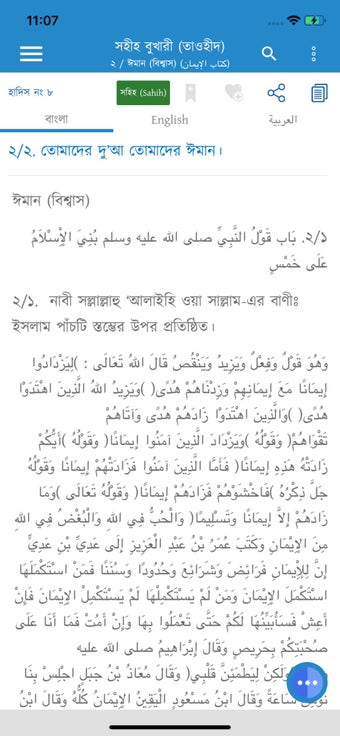 11:07
সহীহ বুখারী (তাওহীদ)
২ / ঈমান (বিশ্বাস) (كتاب الإيمان)
হাদিস নং ৮
সহিহ (Sahih)
বাংলা
English
العربية
২/২. তোমাদের দু'আ তোমাদের ঈমান।
ঈমান (বিশ্বাস)
২/১. بَاب قَوْلُ النَّبِيِّ صلى الله عليه وسلم بُنِيَ الْإِسْلَامُ
عَلَى خَمْسٍ
২/১. নাবী সল্লাল্লাহু 'আলাইহি ওয়া সাল্লাম-এর বাণীঃ
ইসলাম পাঁচটি স্তম্ভের উপর প্রতিষ্ঠিত।
وَهُوَ قَوْلٌ وَفِعْلٌ وَيَزِيدُ وَيَنْقُصُ قَالَ اللهُ تَعَالَى : )لِيَزْدَادُوا
إِيمَانًا مَعَ إِيمَانِهِمْ وَزِدْنَاهُمْ هُدًى( )وَيَزِيدُ اللهُ الَّذِينَ اهْتَدَوْا
هُدًى( )وَالَّذِينَ اهْتَدَوْا زَادَهُمْ هُدًى وَآتَاهُمْ
تَقْوَاهُمْ( وَقَوْلُهُ )وَيَزْدَادَ الَّذِينَ آمَنُوا إِيمَانًا( وَقَوْلُهُ )أَيُّكُمْ
زَادَتْهُ هَذِهِ إِيمَانًا( فَأَمَّا الَّذِينَ آمَنُوا فَزَادَتْهُمْ إِيمَانًا وَقَوْلُهُ
جَلَّ ذِكْرُهُ )فَاخْشَوْهُمْ فَزَادَهُمْ إِيمَانًا( وَقَوْلُهُ تَعَالَى )وَمَا
زَادَهُمْ إِلَّا إِيمَانًا وَتَسْلِيمًا( وَالْحُبُّ فِي اللهِ وَالْبُغْضُ فِي اللهِ
مِنَ الْإِيمَانِ وَكَتَبَ عُمَرُ بْنُ عَبْدِ الْعَزِيزِ إِلَى عَدِيِّ بْنِ عَدِيٍّ
إِنَّ لِلْإِيمَانِ فَرَائِضَ وَشَرَائِعَ وَحُدُودًا وَسُنَنًا فَمَنْ اسْتَكْمَلَهَا
اسْتَكْمَلَ الْإِيمَانَ وَمَنْ لَمْ يَسْتَكْمِلْهَا لَمْ يَسْتَكْمِلْ الْإِيمَانَ فَإِنْ
أَعِشْ فَسَأُبَيِّنُهَا لَكُمْ حَتَّى تَعْمَلُوا بِهَا وَإِنْ أَمُتْ فَمَا أَنَا عَلَى
صُحْبَتِكُمْ بِحَرِيصٍ وَقَالَ إِبْرَاهِيمُ صلى الله عليه
وَلَكِنْ لِيَطْمَئِنَّ قَلْبِي( وَقَالَ مُعَاذُ بْنُ جَبَلٍ اجْلِسْ بِنَا
نُؤْمِنْ سَاعَةً وَقَالَ ابْنُ مَسْعُودٍ الْيَقِينُ الْإِيمَانُ كُلُّهُ وَقَالَ ابْنُ